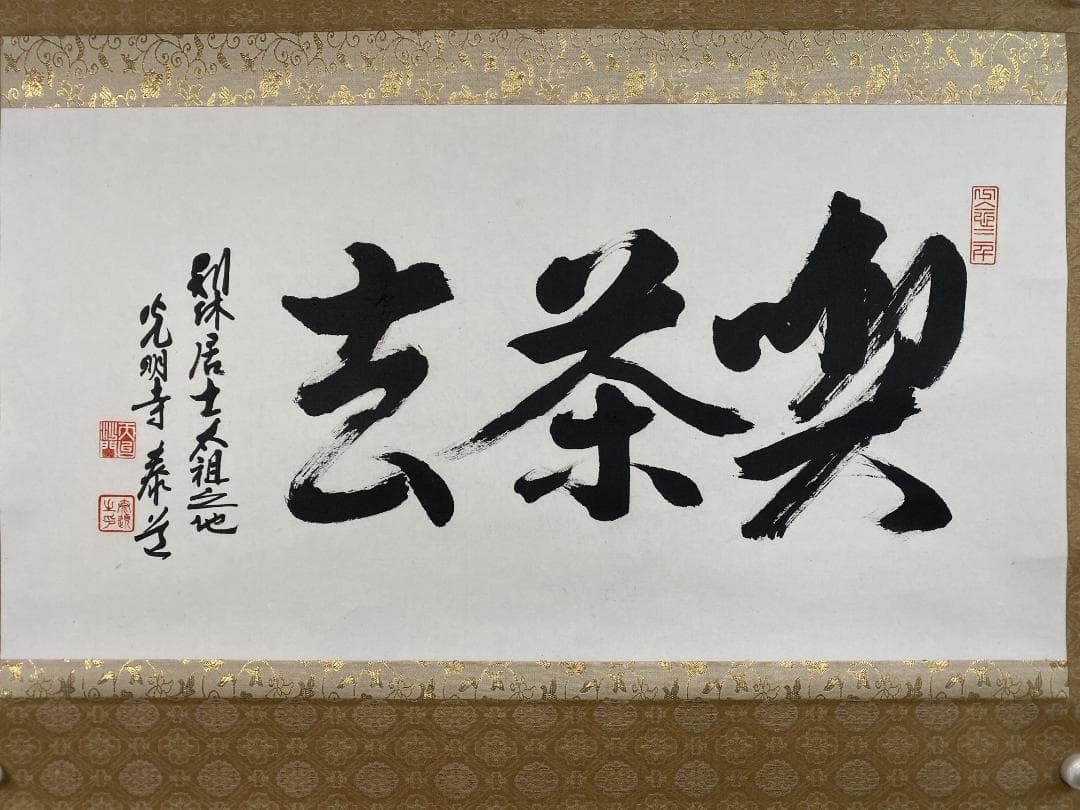 喫茶去
利休居士太祖之地
光明寺 泰道